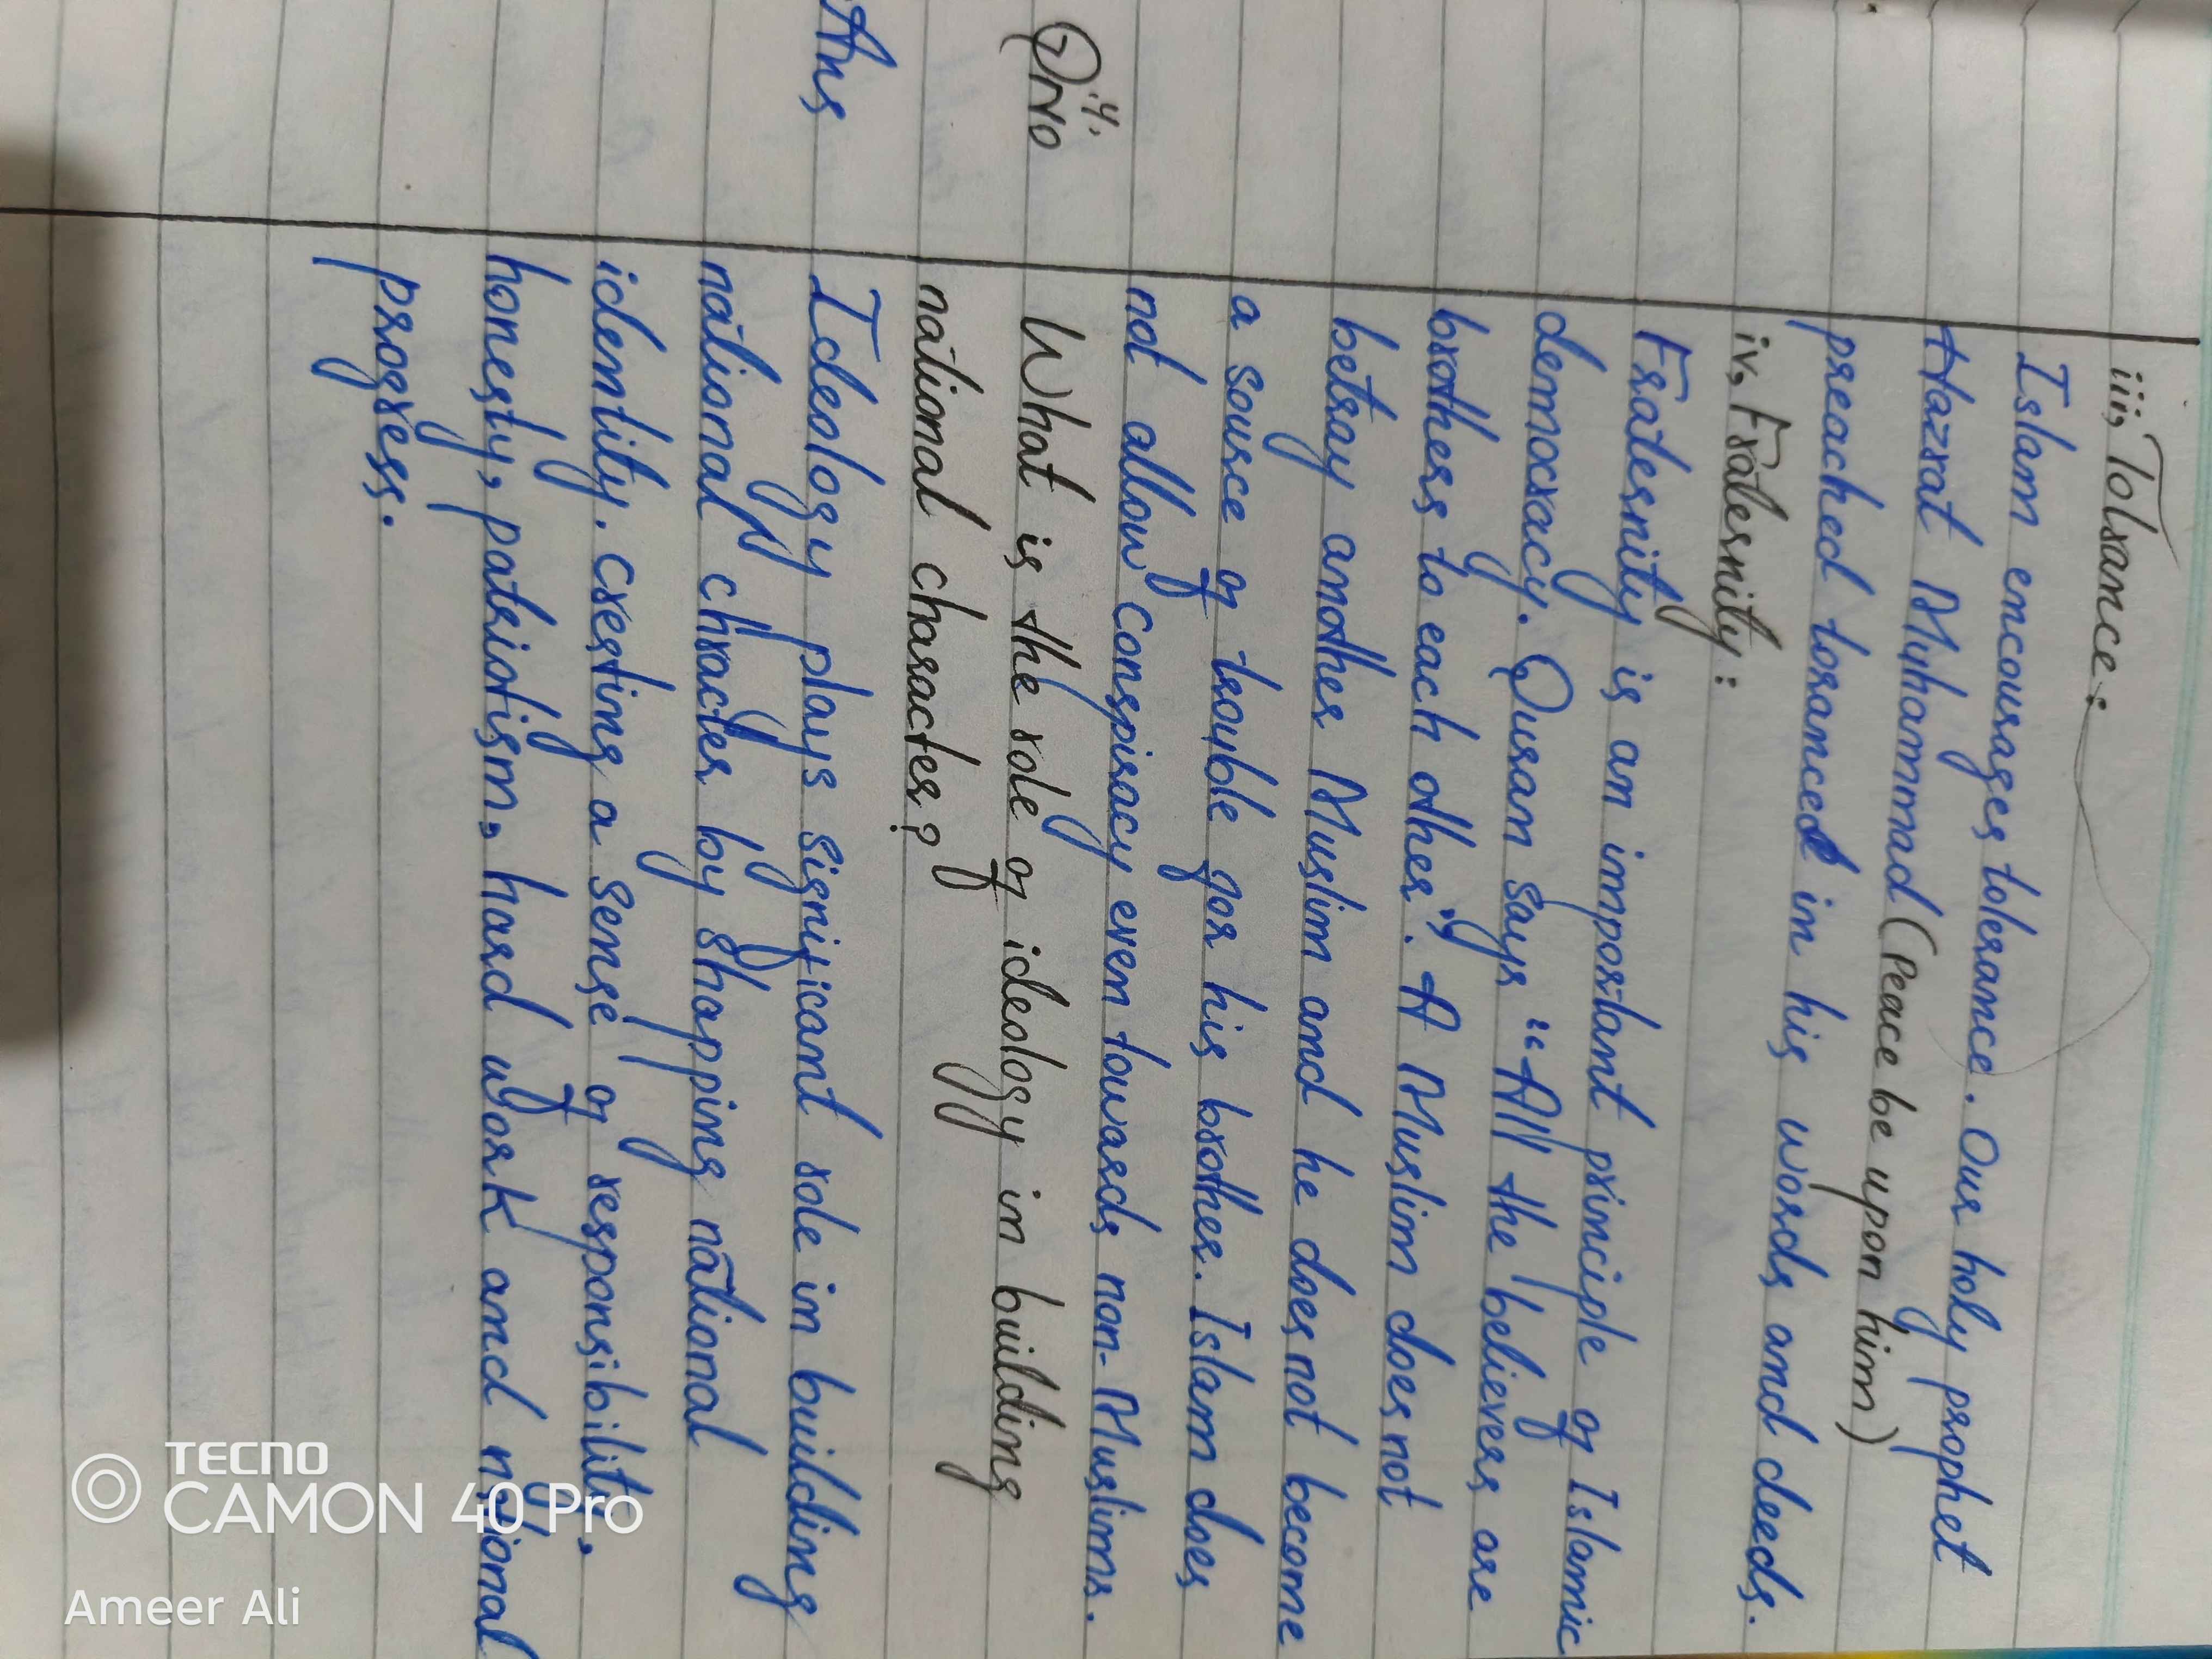 iii, Tolrance:
Islam encourages tolerance. Our holy prophet
Hazrat Muhammad (Peace be upon him)
preached torance in his words and deeds.
iv, Fraternity:
Fraternity is an important principle of Islamic
democracy. Quran says "All the believers are
brothers to each other". A Muslim does not
betray another Muslim and he does not become
a source of trouble for his brother. Islam does
not allow conspiracy even towards non-Muslims.
QNo .4, What is the role of ideology in building
national character?
Ans Ideology plays significant role in building
national chracter by shapping national
identity. Creating a sense of responsibility,
honesty, patriotism, hard work and national
progress.
TECNO
CAMON 40 Pro
Ameer Ali